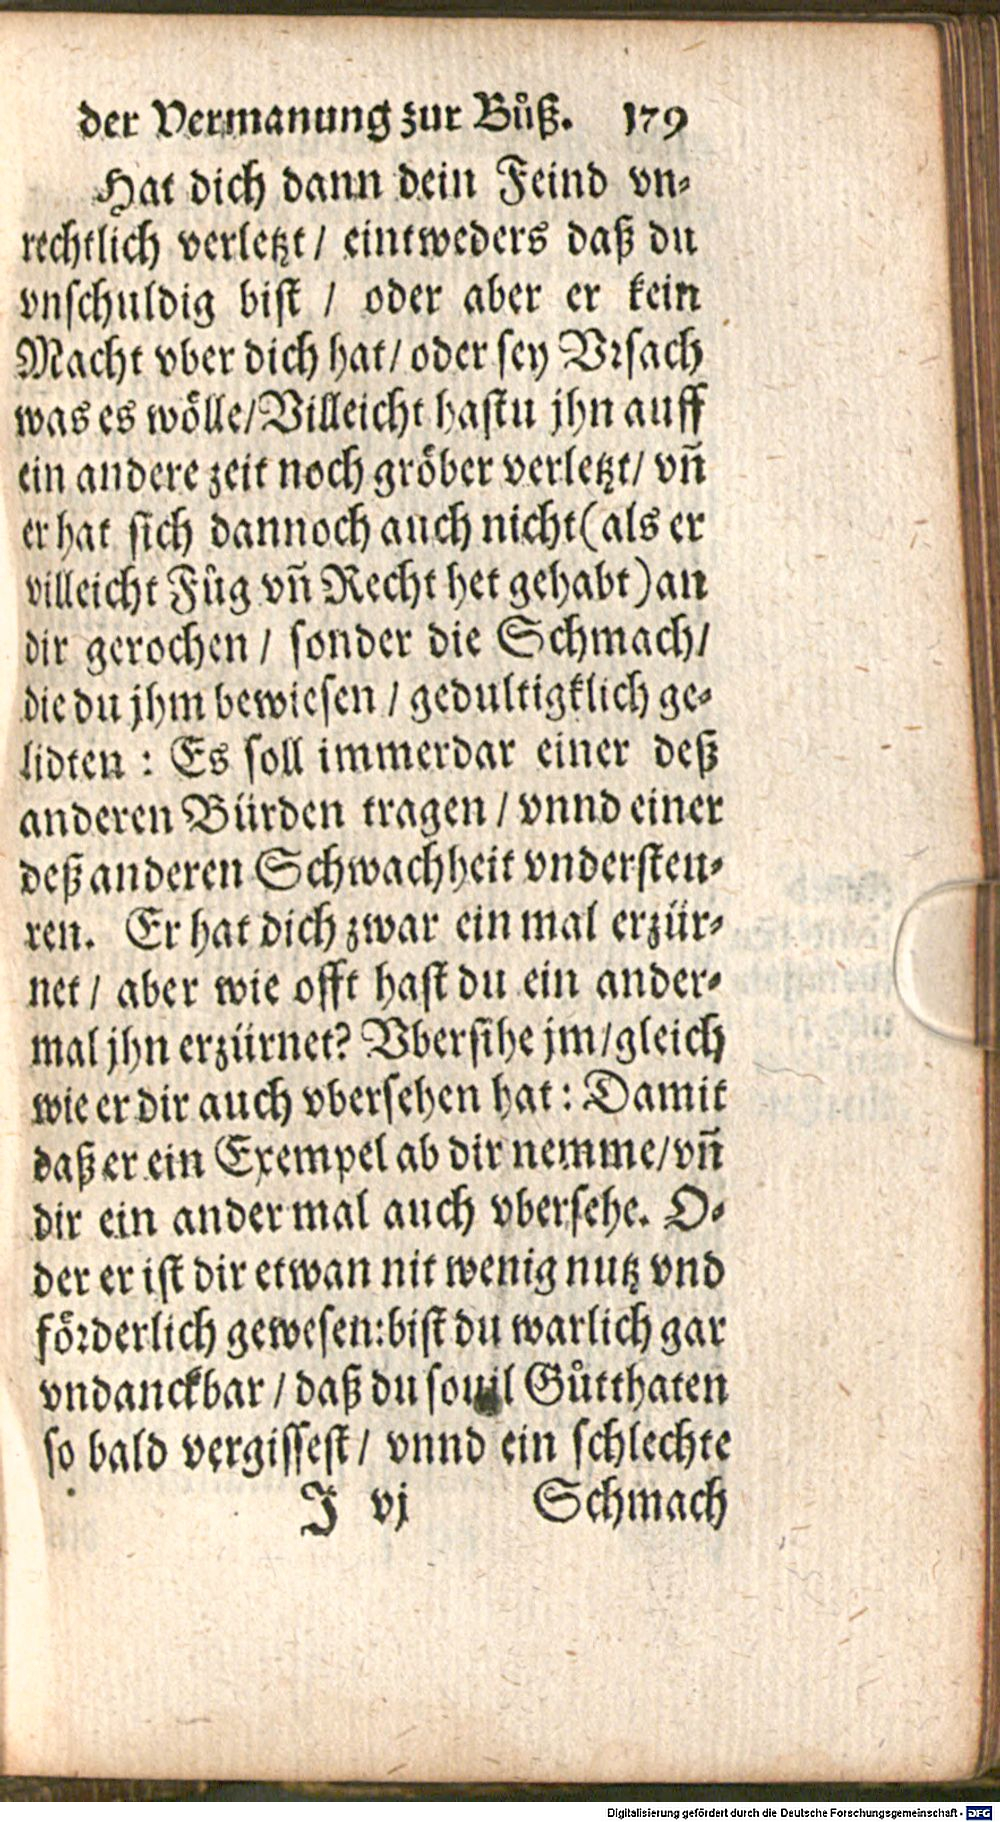 der Vermanung zur Bůß. 179
Hat dich dann dein Feind vn-
rechtlich verletzt / eintweders daß du
vnschuldig bist / oder aber er kein
Macht vber dich hat / oder sey Vrsach
was es wölle / Villeicht hastu jhn auff
ein andere zeit noch gröber verletzt / vñ
er hat sich dannoch auch nicht (als er
villeicht Fůg vñ Recht het gehabt) an
dir gerochen / sonder die Schmach /
die du jhm bewiesen / gedultigklich ge-
lidten : Es soll immerdar einer deß
anderen Bürden tragen / vnnd einer
deß anderen Schwachheit vndersteu-
ren. Er hat dich zwar ein mal erzür-
net / aber wie offt hast du ein ander-
mal jhn erzürnet? Vbersihe jm / gleich
wie er dir auch vbersehen hat : Damit
daß er ein Exempel ab dir nemme / vñ
dir ein ander mal auch vbersehe. O-
der er ist dir etwan nit wenig nutz vnd
förderlich gewesen: bist du warlich gar
vndanckbar / daß du souil Gůtthaten
so bald vergissest / vnnd ein schlechte
J vj Schmach
Digitalisierung gefördert durch die Deutsche Forschungsgemeinschaft - DFG